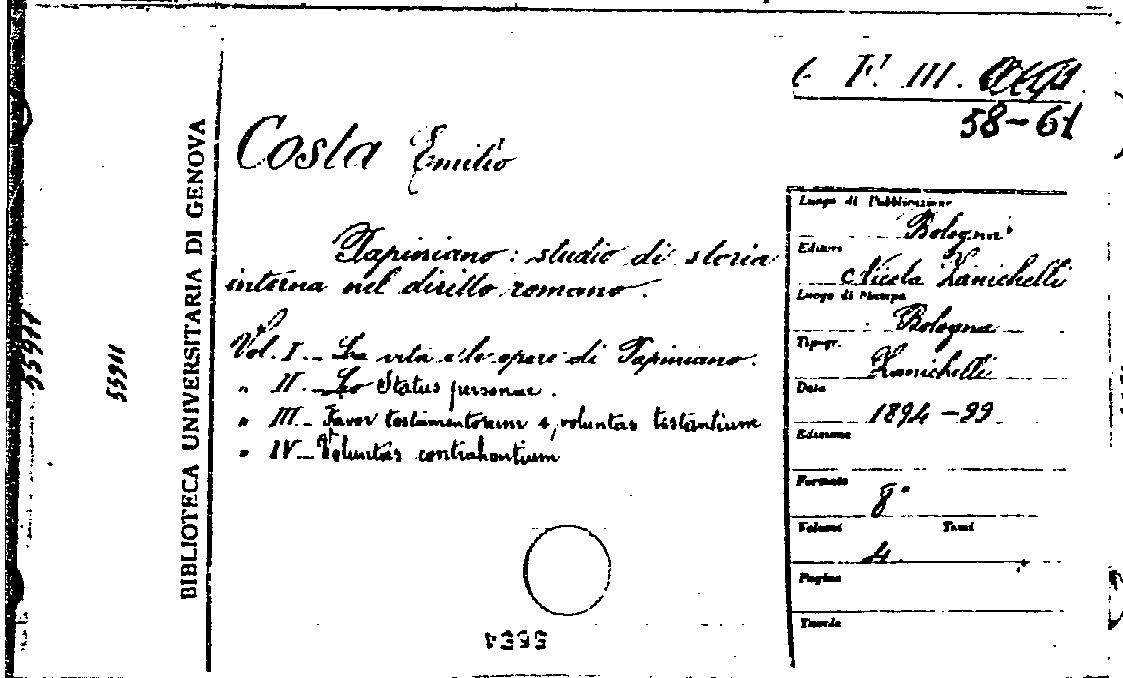 6 F. III.
58-61
BIBLIOTECA UNIVERSITARIA DI GENOVA
55911
55911
Costa Emilio
Papiniano: studio di storia
interna nel diritto romano.
Vol. I. - La vita e le opere di Papiniano.
" II. - Lo Status personae.
" III. - Favor testamentorum e voluntas testantium
" IV - Voluntas contrahentium
Luogo di Pubblicazione
Bologna
Editore
Nicola Zanichelli
Luogo di Stampa
Bologna
Tipogr.
Zanichelli
Data
1894-99.
Edizione
Formato
8°
Volumi Tomi
4
Pagine
Tavole
5534